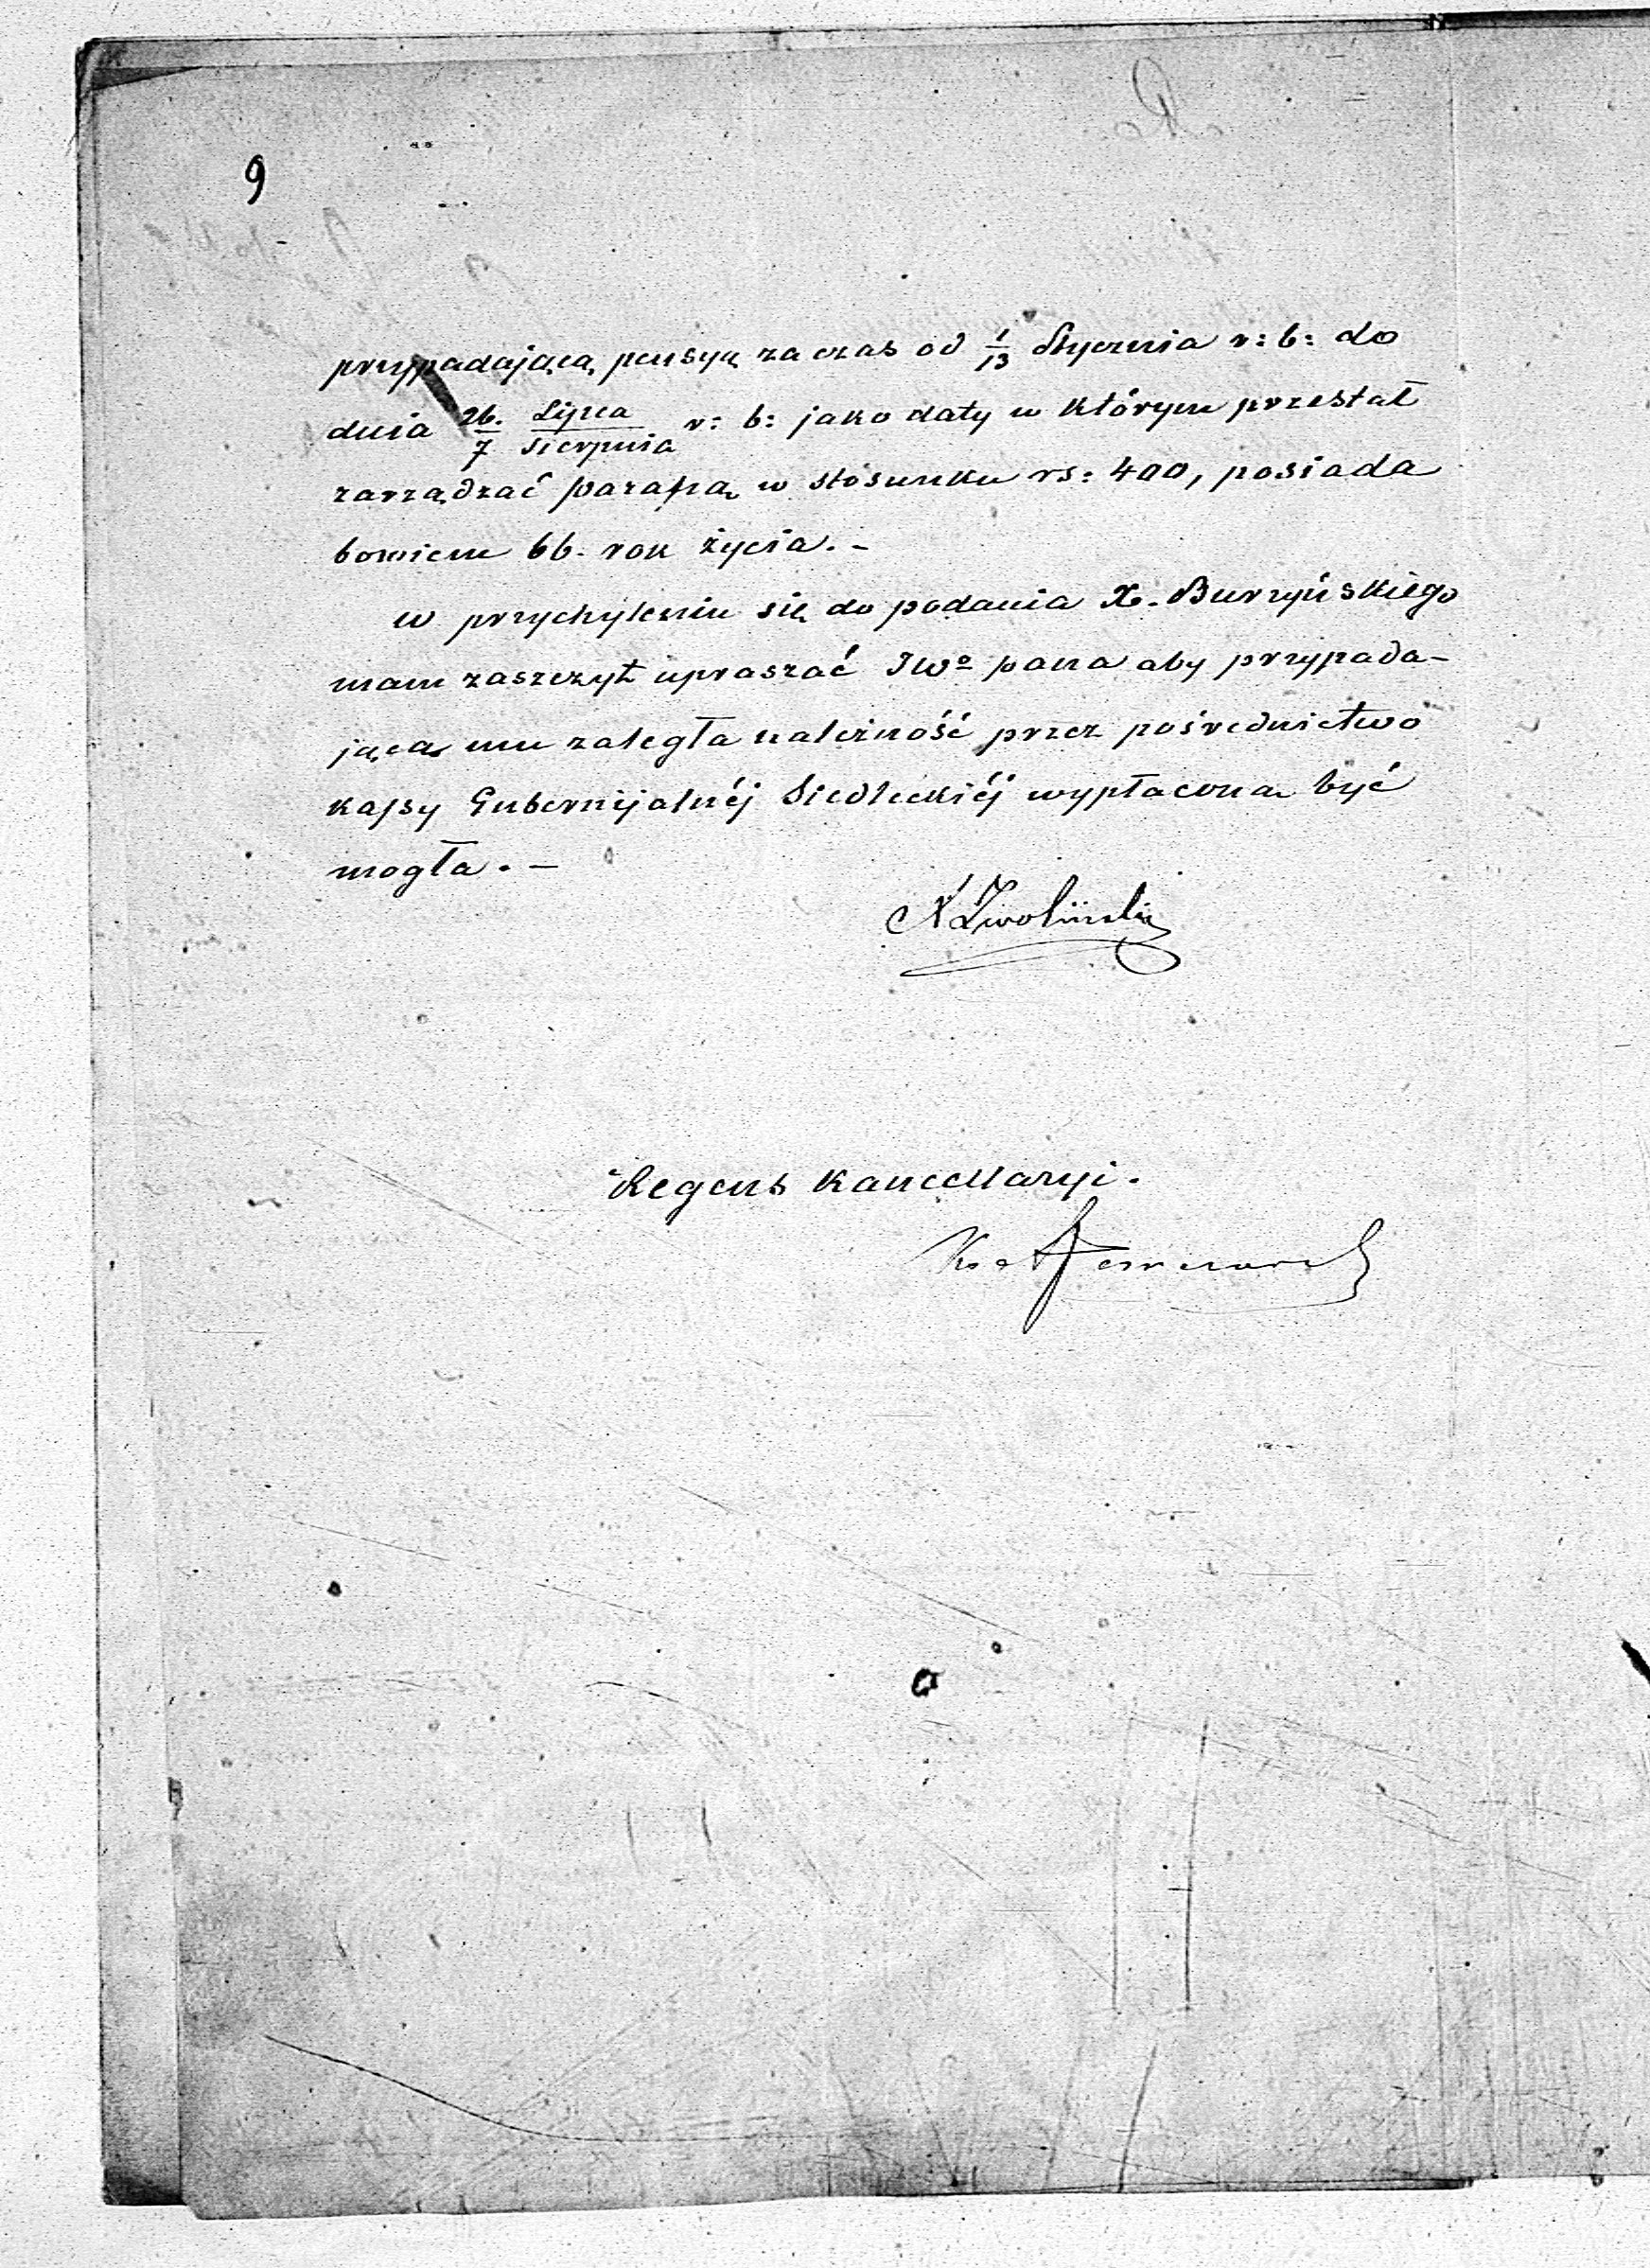 9
przypadającą pensyę za czas od 1/13 Stycznia r: b: do
dnia 26. Lipca/7 Sierpnia r: b: jako daty w którym przestał
zarządzać parafią w stosunku rs: 400, posiada
bowiem 66. rok życia. –
w przychyleniu się do podania X. Burzyńskiego
mam zaszczyt upraszać JWo pana aby przypada-
jąca mu zaległa należność przez pośrednictwo
kassy Gubernijalnéj Siedleckiéj wypłacona być
mogła. –
X Zwoliński
Regens Kancellaryi.